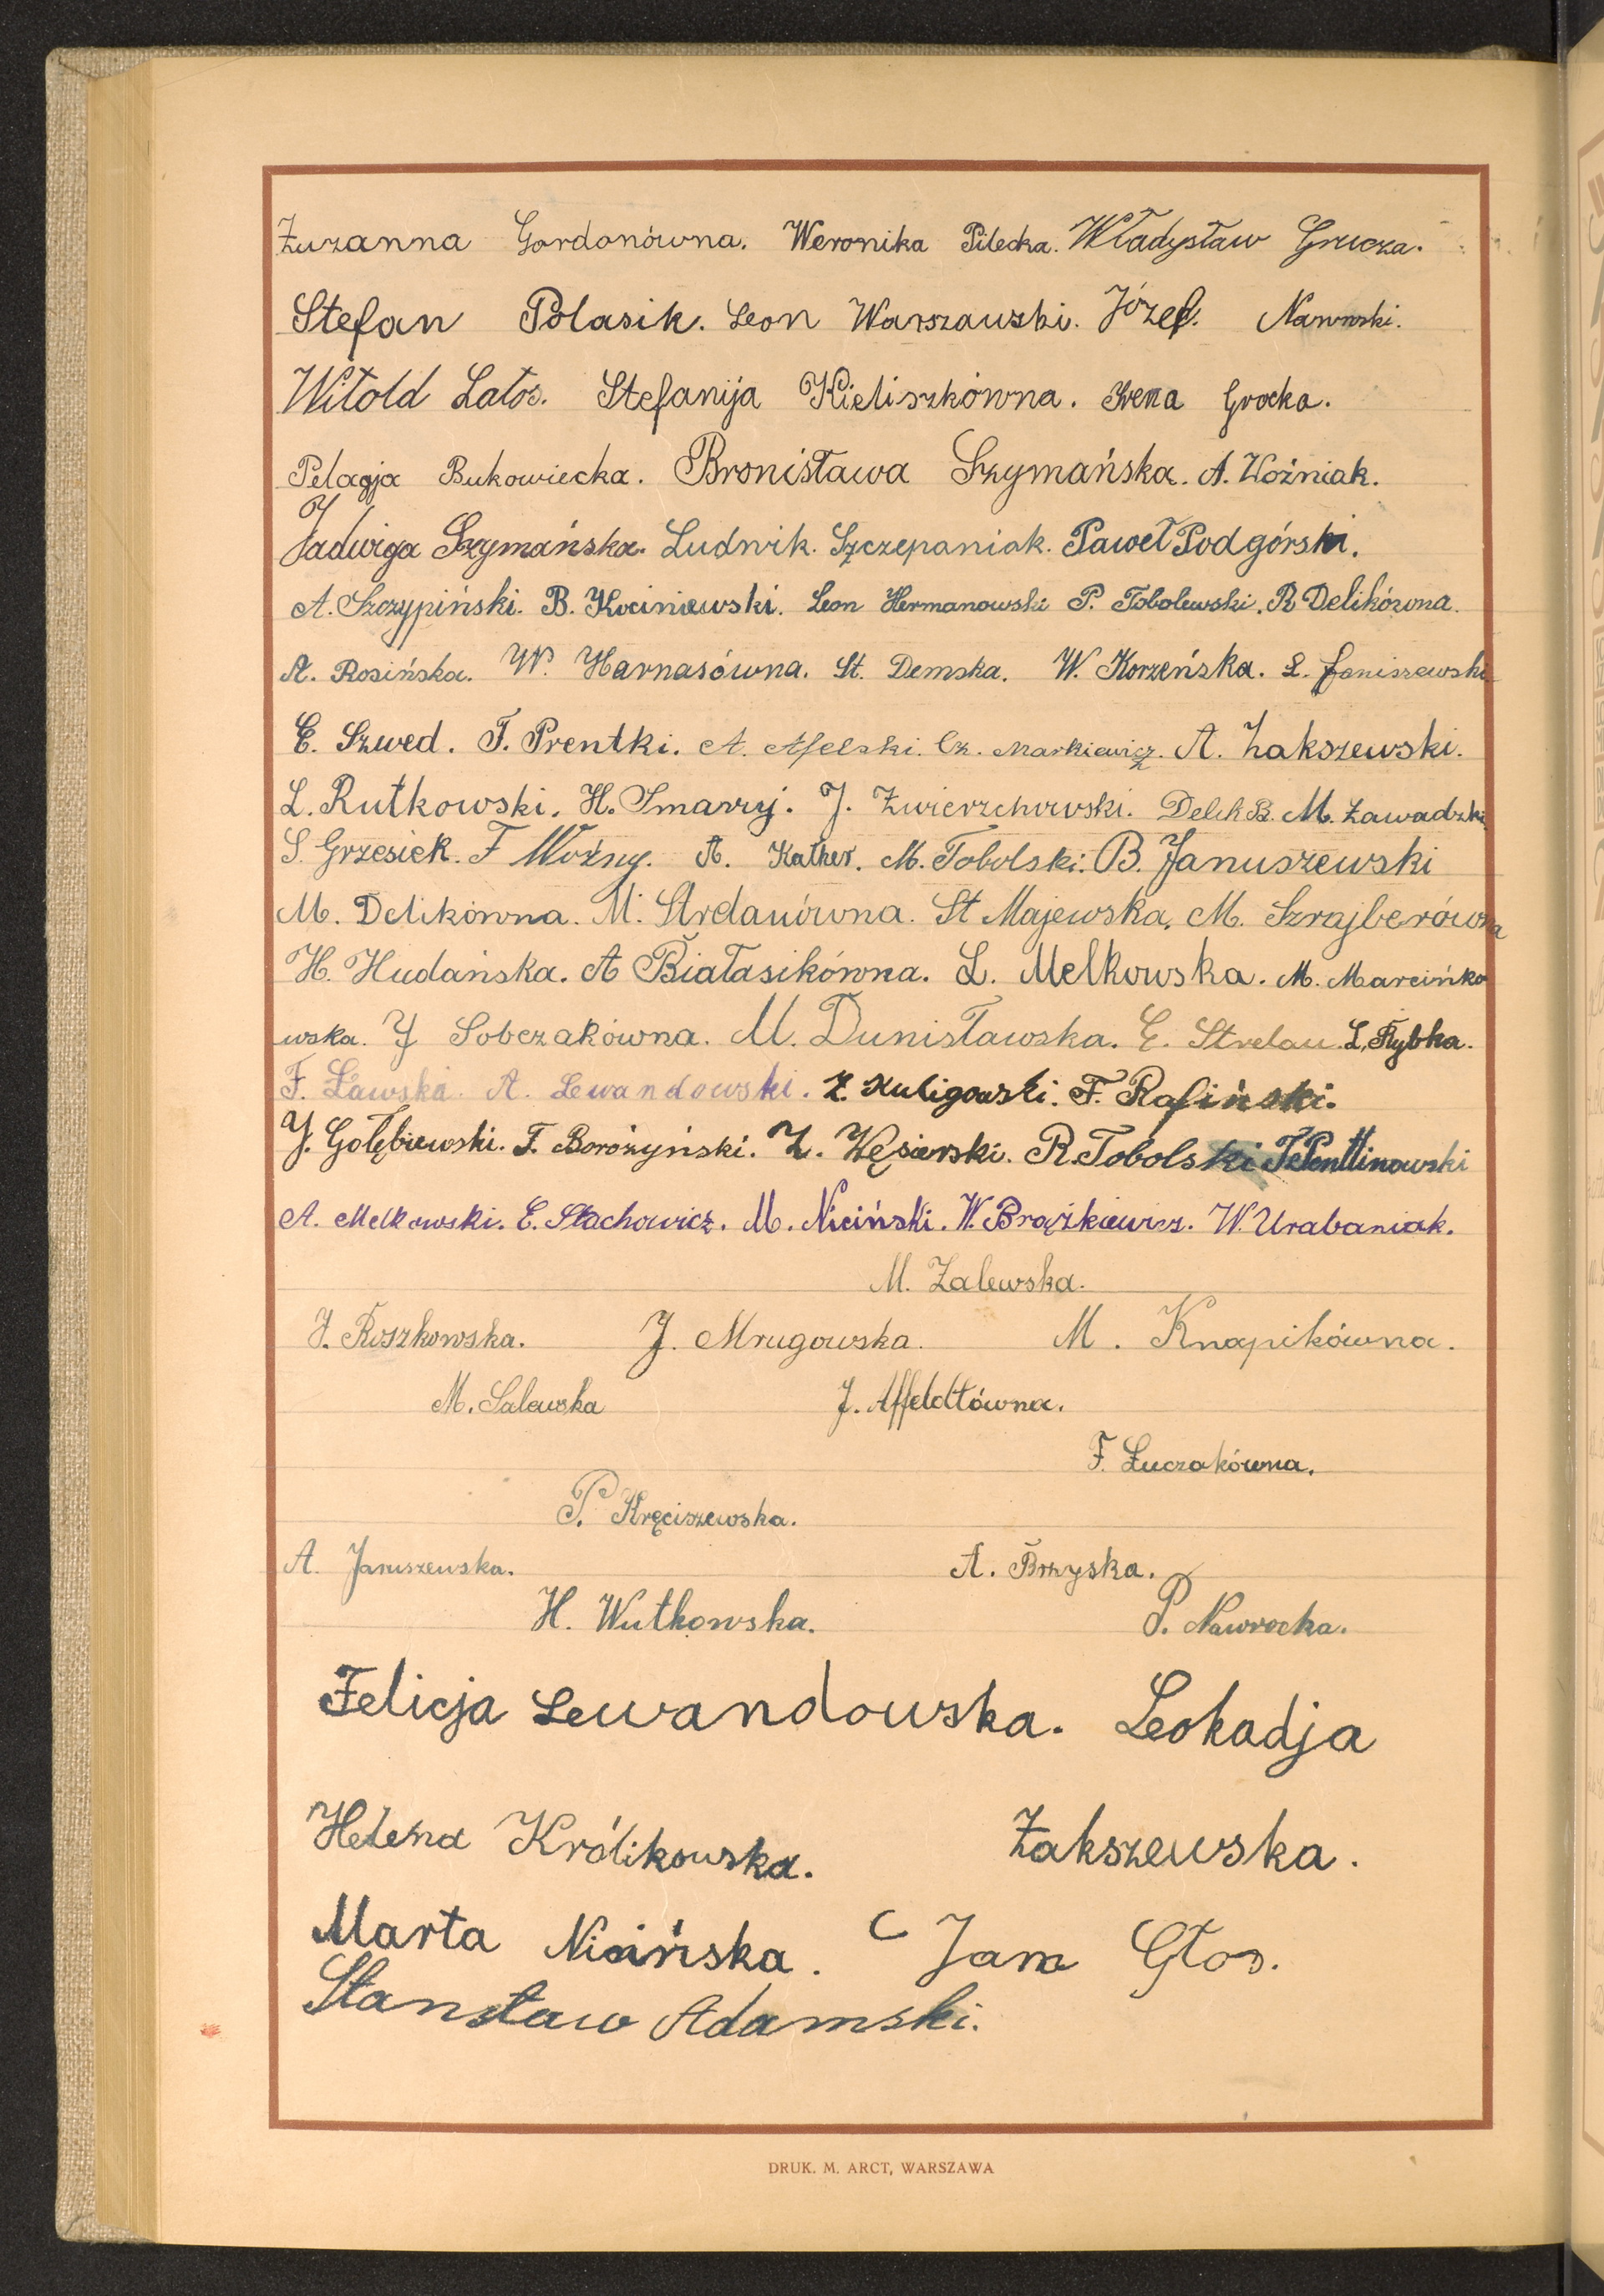 Zuzanna Gordonówna. Weronika Pilecka. Władysław Grucza.
Stefan Polasik. Leon Warszawski. Józef. Nawrocki.
Witold Latos. Stefanija Kieliszkówna. Irena Grocka.
Pelagja Bukowiecka. Bronisława Szymańska. A. Woźniak.
Jadwiga Szymańska. Ludwik. Szczepaniak. Paweł Podgórski.
A. Szczypiński. B. Kociniewski. Leon Hermanowski P. Tobolewski. R Delikówna.
A. Rosińska. W. Harnasówna. St. Demska. W. Korzeńska. L. Janiszewski
E. Szwed. T. Prentki. A. Afelski. Cz. Markiewicz. A. Zakszewski.
L. Rutkowski. H. Smarzyj. J. Zwierzchowski. Delik B. M. Zawadzki
S. Grzesiek. F Woźny. A. Kather. M. Tobolski. B. Januszewski
M. Delikówna. M. Ardanówna. St Majewska, M. Szrajberówna
H. Hudańska. A Białasikówna. L. Melkowska. M. Marcińko
wska. J Sobczakówna. M. Dunisławska. E. Strelau. L. Rybka.
F. Ławska. A. Lewandowski. Z. Kuligowski. F. Rafiński.
J. Gołębiewski. F. Borożyński. Z. Węsierski. R. Tobolski
A. Melkowski. E. Stachowicz. M. Niciński. W. Brążkiewicz. W. Urabaniak.
M. Zalewska.
J. Roszkowska. J. Mrugowska. M. Knapikówna.
M. Salewska J. Affeldtówna.
F. Łuczakówna.
P. Kręciszewska.
A. Januszewska. A. Brzyska.
H. Wutkowska. P. Nawrocka.
Felicja Lewandowska. Leokadja
Helena Królikowska. Zakszewska.
Marta Nicińska. Jan Głos.
Stanisław Adamski.
DRUK. M. ARCT, WARSZAWA